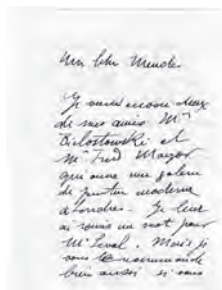 Mon cher Mendes
Je vous envoie deux
de mes amis Mr
Bilostowski et
Mr Fred Mayor
qui ouvre une galerie
de peinture moderne
à Londres. Je leur
ai remis un mot pour
Mr Level. Mais je
vous recommande
bien aussi si vous